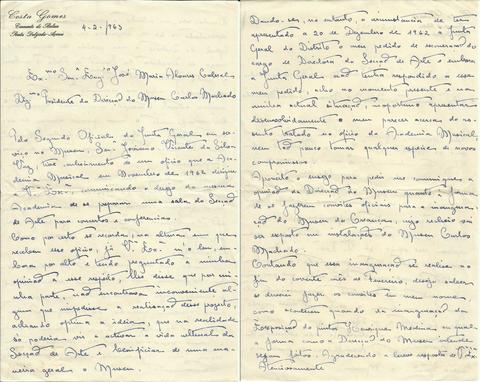 Costa Gomes
Ponta Delgada-Açores
4-2-/963
Ex.mo Snr. Eng.º José Maria Alvares Cabral
Dig.mo Presidente da Direcção do Museu Carlos Machado
Pelo Segundo Oficial da Junta Geral em ser-
viço no Museu, Snr. Jacinto Vicente da Silva
Vaz, tive conhecimento de um ofício que a Aca-
demia Musical em Novembro de 1962 dirigiu
a V. Ex.ª, comunicando o desejo da mesma
Academia de se preparar uma sala da Secção
de Arte para concertos e conferências.
Como por certo se recorda, na altura em que
recebeu esse ofício, já V. Ex.ª m'o leu, em-
bora por alto e tendo perguntado a minha
opinião a esse respeito, lhe disse que por mi-
nha parte, não encontrava inconveniente al-
gum que impedisse a realização desse projecto,
achando óptima a ideia, que na realidade
só poderia vir a activar a vida cultural da
Secção de Arte e beneficiar de uma ma-
neira geral o Museu.
Dando-se, no entanto, a circunstância de ter
apresentado a 20 de Dezembro de 1962 à Junta
Geral do Distrito o meu pedido de exoneração do
cargo de Directora da Secção de Arte e embora
a Junta Geral nada tenha respondido a esse
meu pedido, acho no momento presente e na
minha actual situação, inoportuno apresentar
desenvolvidamente o meu parecer acerca do as-
sunto tratado no ofício da Academia Musical,
nem tão pouco tomar qualquer espécie de novos
compromissos.
Aproveito o ensejo para pedir me comunique a
opinião da Direcção do Museu quanto à forma
de se fazerem convites oficiais para a inaugura-
ção do Museu do
ser exposto em instalações do Museu Carlos
Machado.
Contando que essa inauguração se realize no
fim do corrente mês de Fevereiro, desejo saber
se deverei fazer os convites em meu nome,
como aconteceu quando da inauguração da
Exposição do pintor Henrique Medina ou qual
a forma como a Direcção do Museu entende
sejam feitos. Agradecendo a breve resposta de V. Ex.ª
Atenciosamente